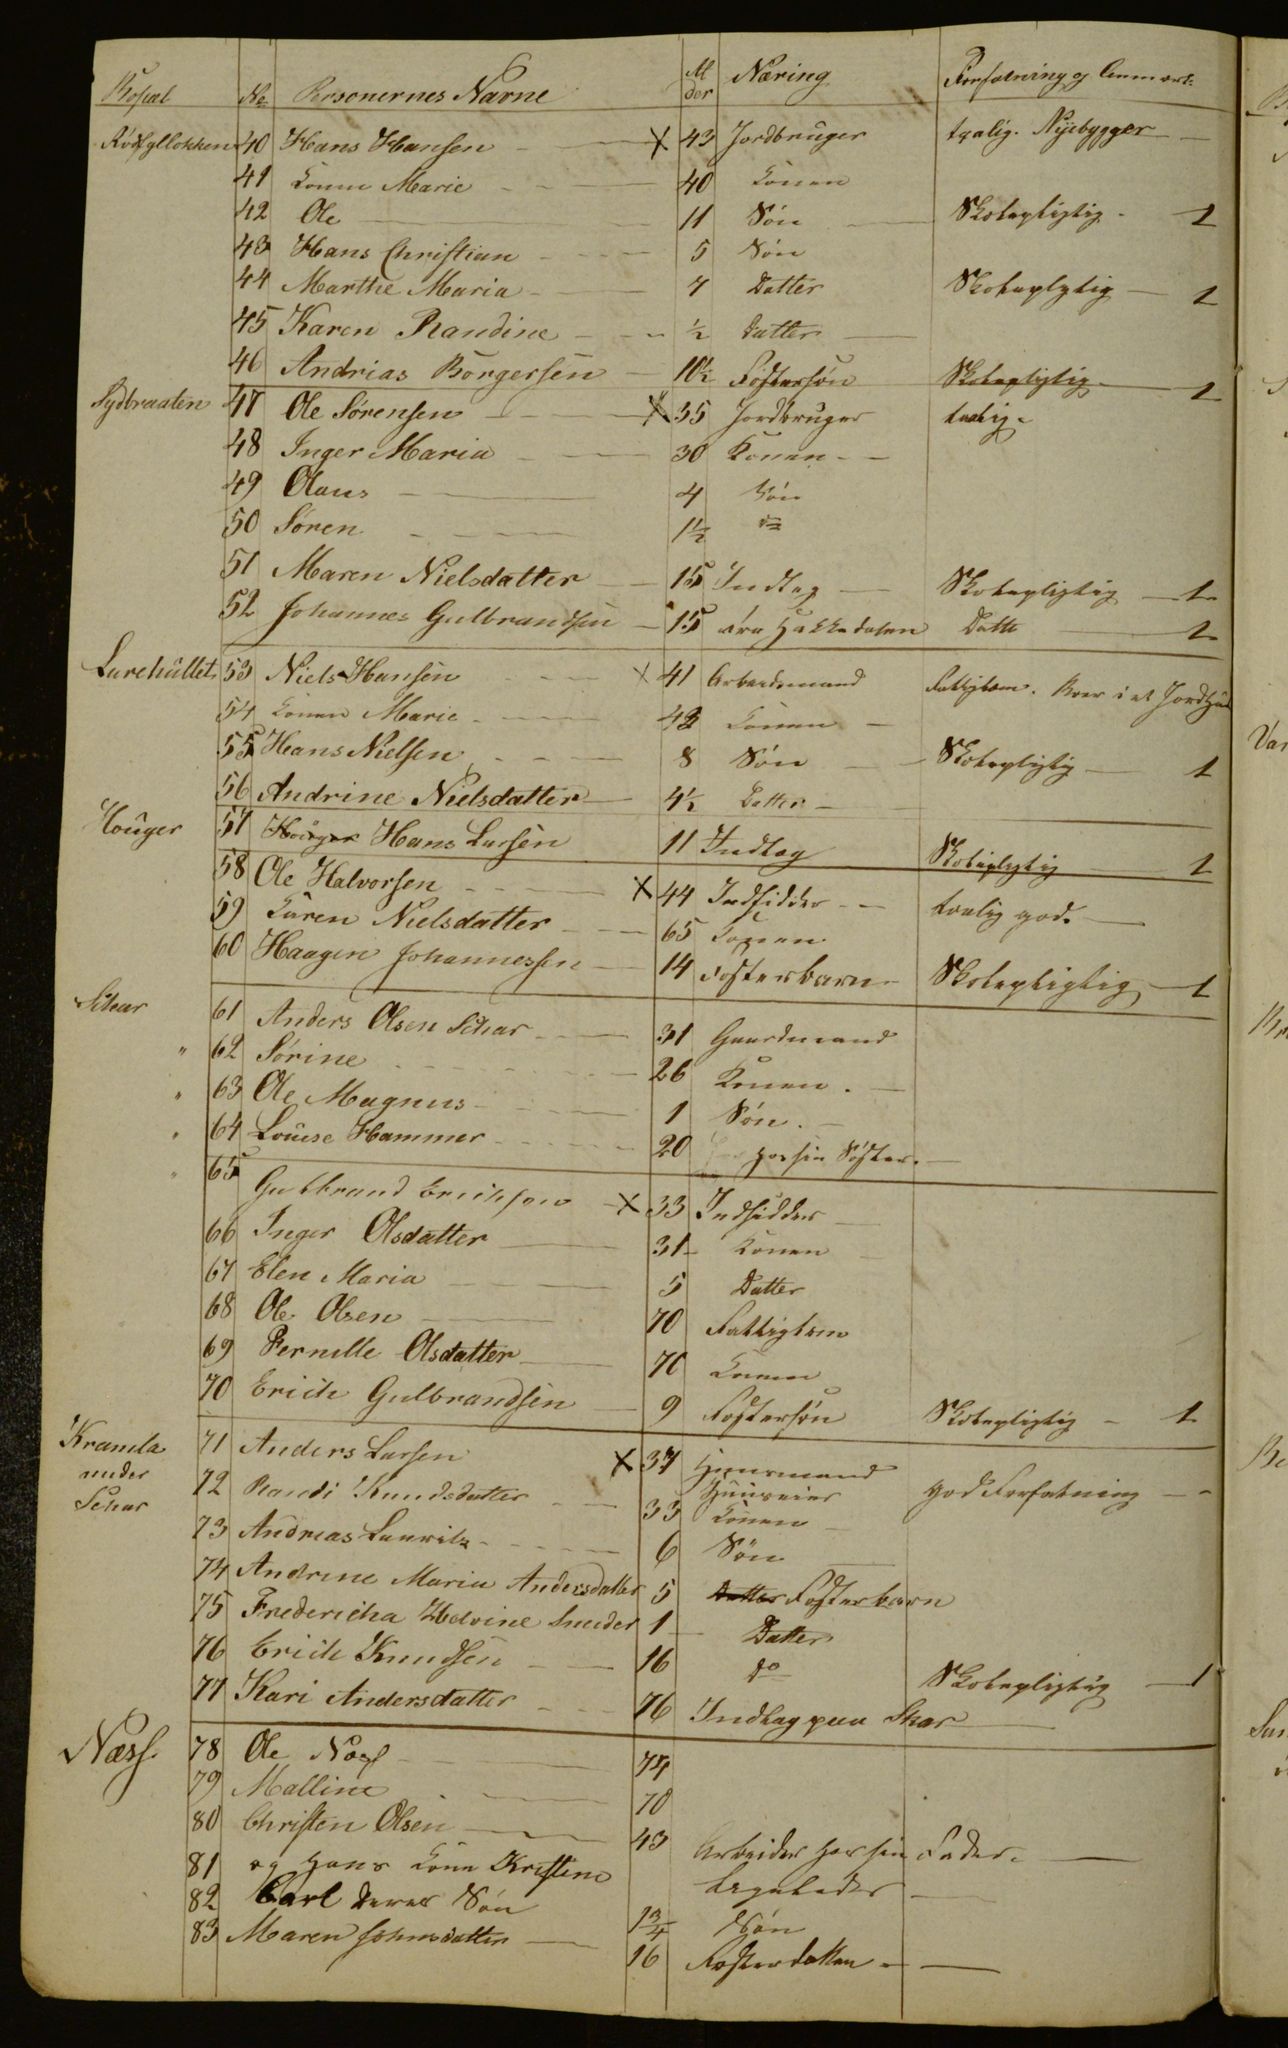 Bopæl No. Personernes Navne Alder Næring Forfatning og Anmærk.
40 Hans Hansen X 43 Jordbruger taalig. Nyebygger
41 Konen Marie 40 Konen
42 Ole 11 Søn Skolepligtig 1
43 Hans Christian 5 Søn
44 Marthe Maria 7 Datter Skoleplgtig 1
45 Karen Randine ½ Datter
46 Andrias Borgersen 10½ Fostersøn Skolepligtig 1
Sydbraaten 47 Ole Sørensen X 35 Jordbruger taalig
48 Inger Maria 30 Konen
49 Olaus 4 Søn
50 Sören 1½ do
51 Maren Nielsdatter 15 Indlag Skolepligtig 1
52 Johannes Gulbrandsen 15 fra Hakkedalen Dette 1
Lurehullet 53 Niels Hansen X 41 Arbeidsmand Fattiglem. Boer i et
54 Konen Marie 42 Konen
55 Hans Nielsen 8 Søn Skolepligtig 1
56 Andrine Nielsdatter 4½ Datter
Houger 57 Houger Hans Larsen 11 Indlag Skoleplgtig 1
58 Ole Halvorsen X 44 Indsidder taalig god.
59 Karen Nielsdatter 65 Konen
60 Haagen Johannessen 14 Fosterbarn Skolepligtig 1
Schar 61 Anders Olsen Schar 31 Gaardmand
" 62 Sørine 26 Konen.
" 63 Ole Magnus 1 Søn.
" 64 Louise Hammer 20 hos sin Søster.
" 65 Gulbrand Erichsen X 33 Indsidder
66 Inger Olsdatter 31 Konen
67 Elen Maria 5 Datter
68 Ole Olsen 70 Fattiglem
69 Pernille Olsdatter 70 Konen
70 Erich Gulbrandsen 9 Fostersøn Skolepligtig 1
Kramla 71 Anders Larsen X 37 Huusmand
under 72 Randi Knudsdatter 33 Konen god Forfatning
Schar
73 Andreas Lauritz 6 Søn
74 Andrine Maria Andersdatter 5 Datter Fosterbarn
75 Fredericha Helvine 1 Datter
76 Erich Knudsen 16 do Skolepligtig 1
77 Kari Andersdatter 76 Indlag paa Skar
Næss. 78 Ole Næss 74
79 Malline 70
80 Christen Olsen 43 Arbeider hos sin Fader.
81 og Hans Kone Kristine Ligeledes
82 Carl deres Søn 1¾ Søn
83 Maren Johnsdatter 16 Fosterdatter